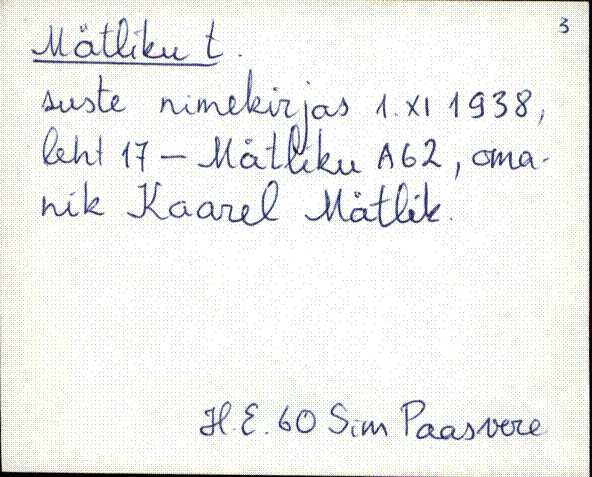 3
Mätliku t.
suste nimekirjas 1. XI 1938,
leht 17 – Mätliku A62, oma-
nik Kaarel Mätlik.
H.E. 60 Sim Paasvere